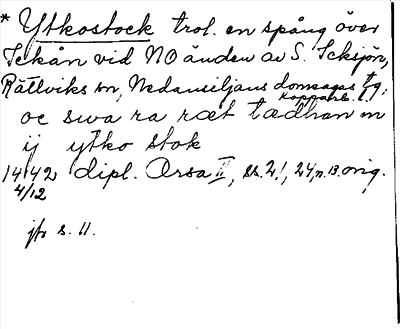 * Ytkostock trol. en spång över
Ickån vid NO änden av S. Icksjön,
Rättviks sn, Nedansiljans domsagas tg,
Kopparb. l.
oc swa ra ræt tædhan m
ij ytko stok
1442 dipl. Orsa II, ss. 2!, 24, n. 13. orig.
4/12
jfr s. 11.